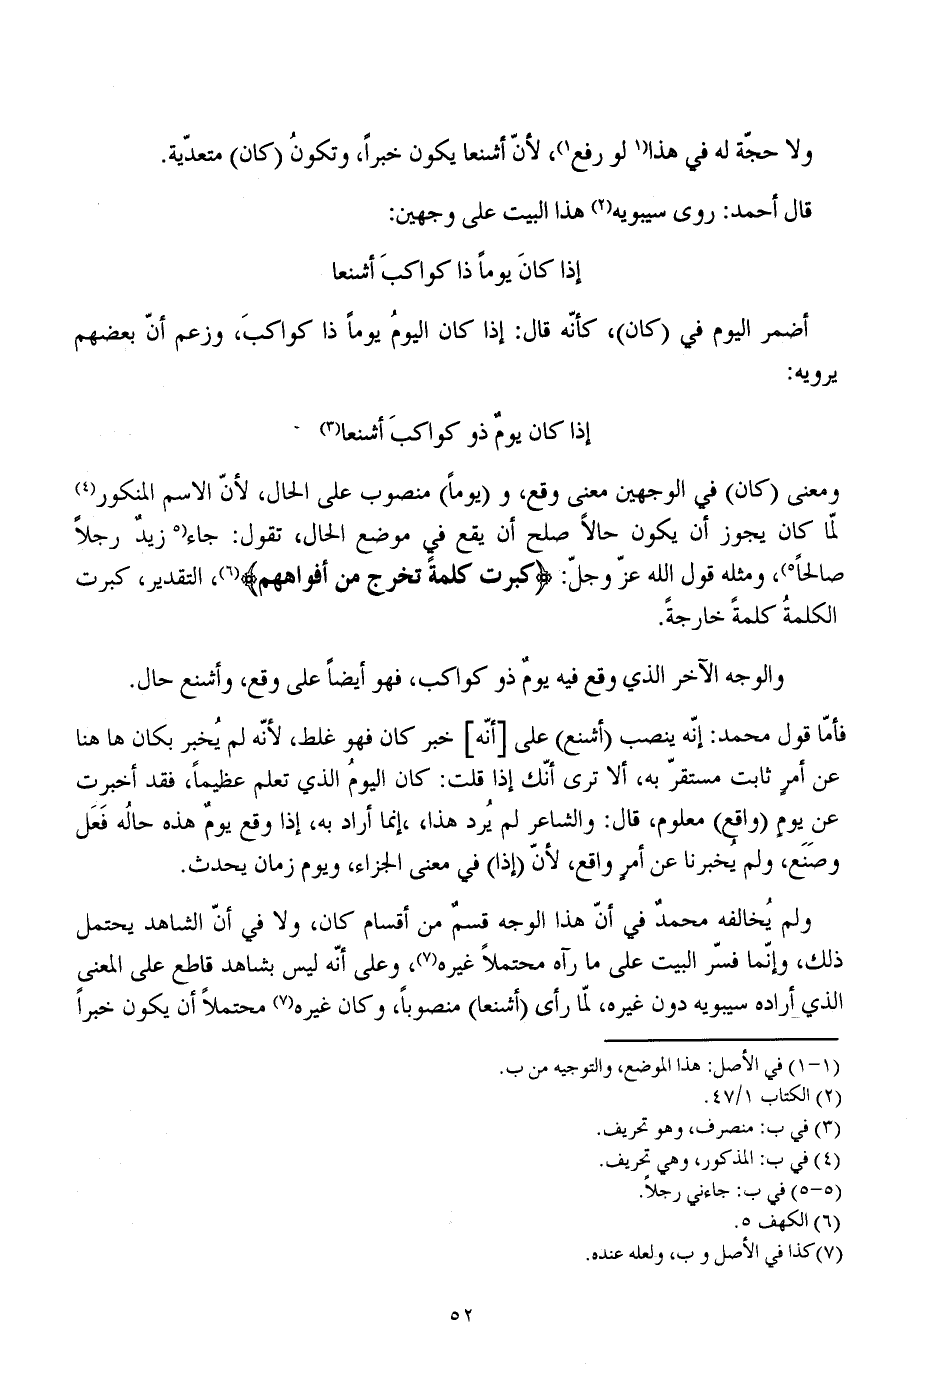 ولا حجّة له في هذا(١ لو رفع١)، لأنّ أشنعا يكون خبراً، وتكونُ (كان) متعدّية.
قال أحمد: روى سيبويه(٢) هذا البيت على وجهين:
إذا كانَ يوماً ذا كواكبَ أشنعا
أضمر اليوم في (كان)، كأنّه قال: إذا كان اليومُ يوماً ذا كواكبَ، وزعم أنّ بعضهم
يرويه:
إذا كان يومٌ ذو كواكبَ أشنعا(٣)
ومعنى (كان) في الوجهين معنى وقع، و (يوماً) منصوب على الحال، لأنّ الاسم المنكور(٤)
لمّا كان يجوز أن يكون حالاً صلح أن يقع في موضع الحال، تقول: جاء(٥ زيدٌ رجلاً
صالحاً٥)، ومثله قول الله عزّ وجلّ: ﴿كبرت كلمةً تخرج من أفواههم﴾(٦)، التقدير، كبرت
الكلمةُ كلمةً خارجةً.
والوجه الآخر الذي وقع فيه يومٌ ذو كواكب، فهو أيضاً على وقع، وأشنع حال.
فأمّا قول محمد: إنّه ينصب (أشنع) على [أنّه] خبر كان فهو غلط، لأنّه لم يُخبر بكان ها هنا
عن أمرٍ ثابت مستقرّ به، ألا ترى أنّك إذا قلت: كان اليومُ الذي تعلم عظيماً، فقد أخبرت
عن يومٍ (واقعٍ) معلوم، قال: والشاعر لم يُرد هذا، ،إنما أراد به، إذا وقع يومٌ هذه حالُه فَعَل
وصَنَع، ولم يُخبرنا عن أمرٍ واقع، لأنّ (إذا) في معنى الجزاء، ويوم زمان يحدث.
ولم يُخالفه محمدٌ في أنّ هذا الوجه قسمٌ من أقسام كان، ولا في أنّ الشاهد يحتمل
ذلك، وإنّما فسّر البيت على ما رآه محتملاً غيره(٧)، وعلى أنّه ليس بشاهد قاطع على المعنى
الذي أراده سيبويه دون غيره، لمّا رأى (أشنعا) منصوباً، وكان غيره(٧) محتملاً أن يكون خبراً
(١-١) في الأصل: هذا الموضع، والتوجيه من ب.
(٢) الكتاب ٤٧/١.
(٣) في ب: منصرف، وهو تحريف.
(٤) في ب: المذكور، وهي تحريف.
(٥-٥) في ب: جاءني رجلاً.
(٦) الكهف ٥.
(٧)كذا في الأصل و ب، ولعله عنده.
٥٢